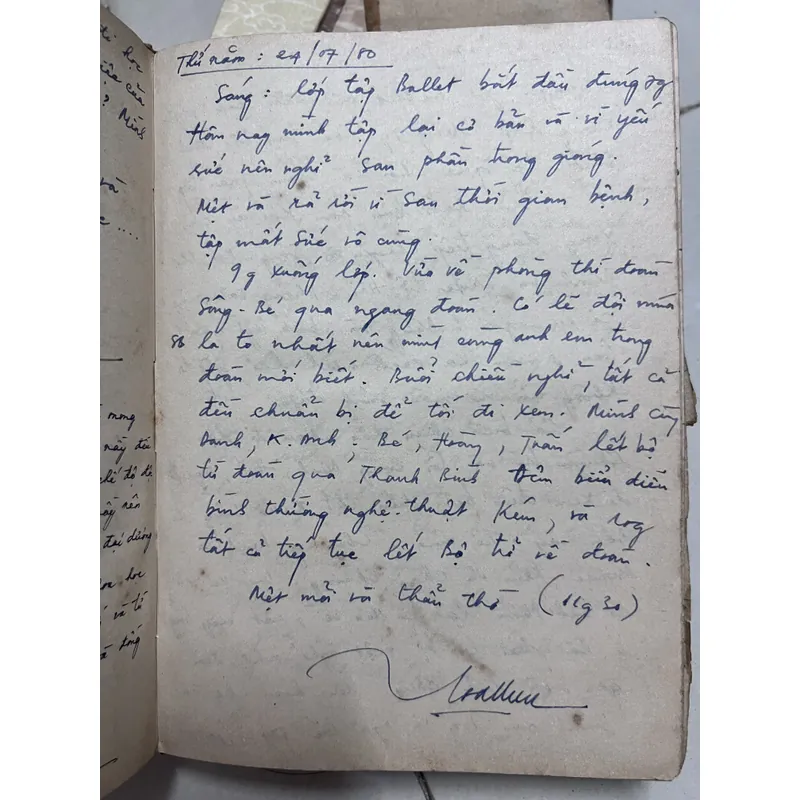 Thứ năm : 24/07/80
Sáng : lớp tập Ballet bắt đầu đúng 7g
Hôm nay mình tập lại cơ bản và vì yếu
sức nên nghỉ sau phần trong gióng.
Mệt và rã rời vì sau thời gian bệnh,
tập mất sức vô cùng.
9g xuống lớp. Vừa về phòng thì đoàn
Sông-Bé qua ngang đoàn. Có lẽ đội múa
SB là to nhất nên mình cùng anh em trong
đoàn mới biết. Buổi chiều nghỉ, tất cả
đều chuẩn bị để tối đi xem. Mình cùng
Oanh, K.Anh, Bé, Hoàng, Trấn lết bộ
từ đoàn qua Thanh Bình. Đêm biểu diễn
bình thường nghệ-thuật kém, và xog
tất cả tiếp tục lết bộ trở về đoàn.
Mệt mỏi và thẩn thờ (11g30)
ti học
Mình
và
mong
này đã
chế độ
này nên
đại dương
học
và tô